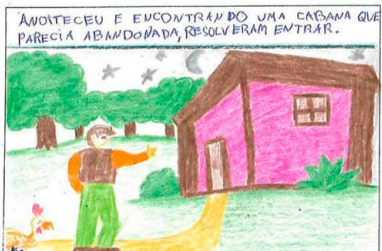 ANOITECEU E ENCONTRANDO UMA CABANA QUE
PARECIA ABANDONADA, RESOLVERAM ENTRAR.